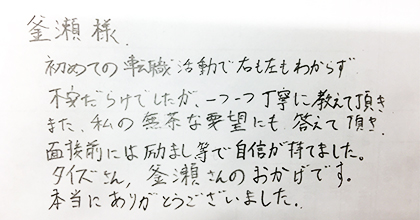 釜瀬様.
初めての転職活動で右も左もわからず
不安だらけでしたが、一つ一つ丁寧に教えて頂き
また、私の無茶な要望にも答えて頂き.
面接前には励まし等で自信が持てました。
タイズさん, 釜瀬さんのおかげです。
本当にありがとうございました.